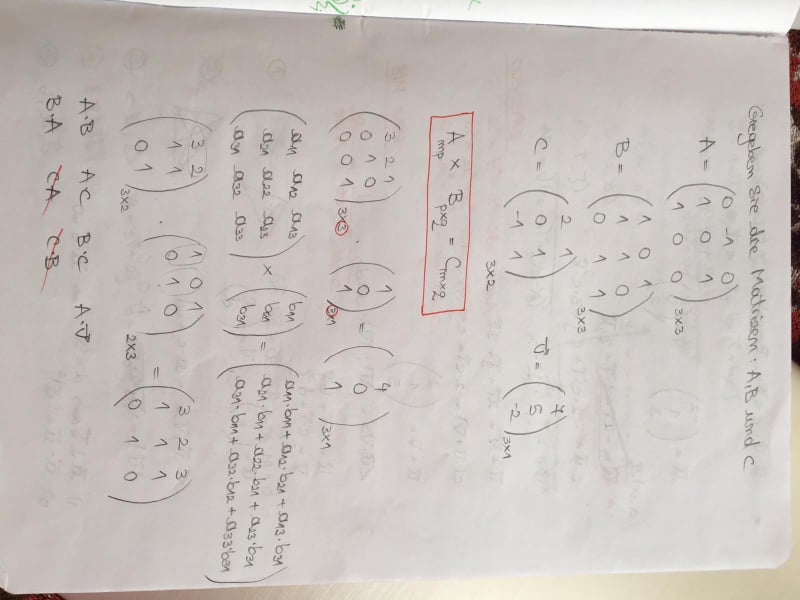 Gegeben Sie die Matrizen: A, B und C
A = ( 0 -1 0
1 0 1
1 0 0 ) 3x3
B = ( 1 0 1
1 1 0
0 1 1 ) 3x3
C = ( 2 1
0 1
-1 1 ) 3x2
v⃗ = ( 7
5
-2 ) 3x1
A mp × B pxq = C mxq
( 3 2 1
0 1 0
0 0 1 ) 3x3 · ( 1
0
1 ) 3x1 = ( 4
0
1 ) 3x1
( a11 a12 a13
a21 a22 a23
a31 a32 a33 ) × ( b11
b21
b31 ) = ( a11·b11 + a12·b21 + a13·b31
a21·b11 + a22·b21 + a23·b31
a31·b11 + a32·b12 + a33·b31 )
( 3 2
1 1
0 1 ) 3x2 · ( 1 0 1
0 1 0 ) 2x3 = ( 3 2 3
1 1 1
0 1 0 )
A·B A·C B·C A·v⃗
B·A CA C·B